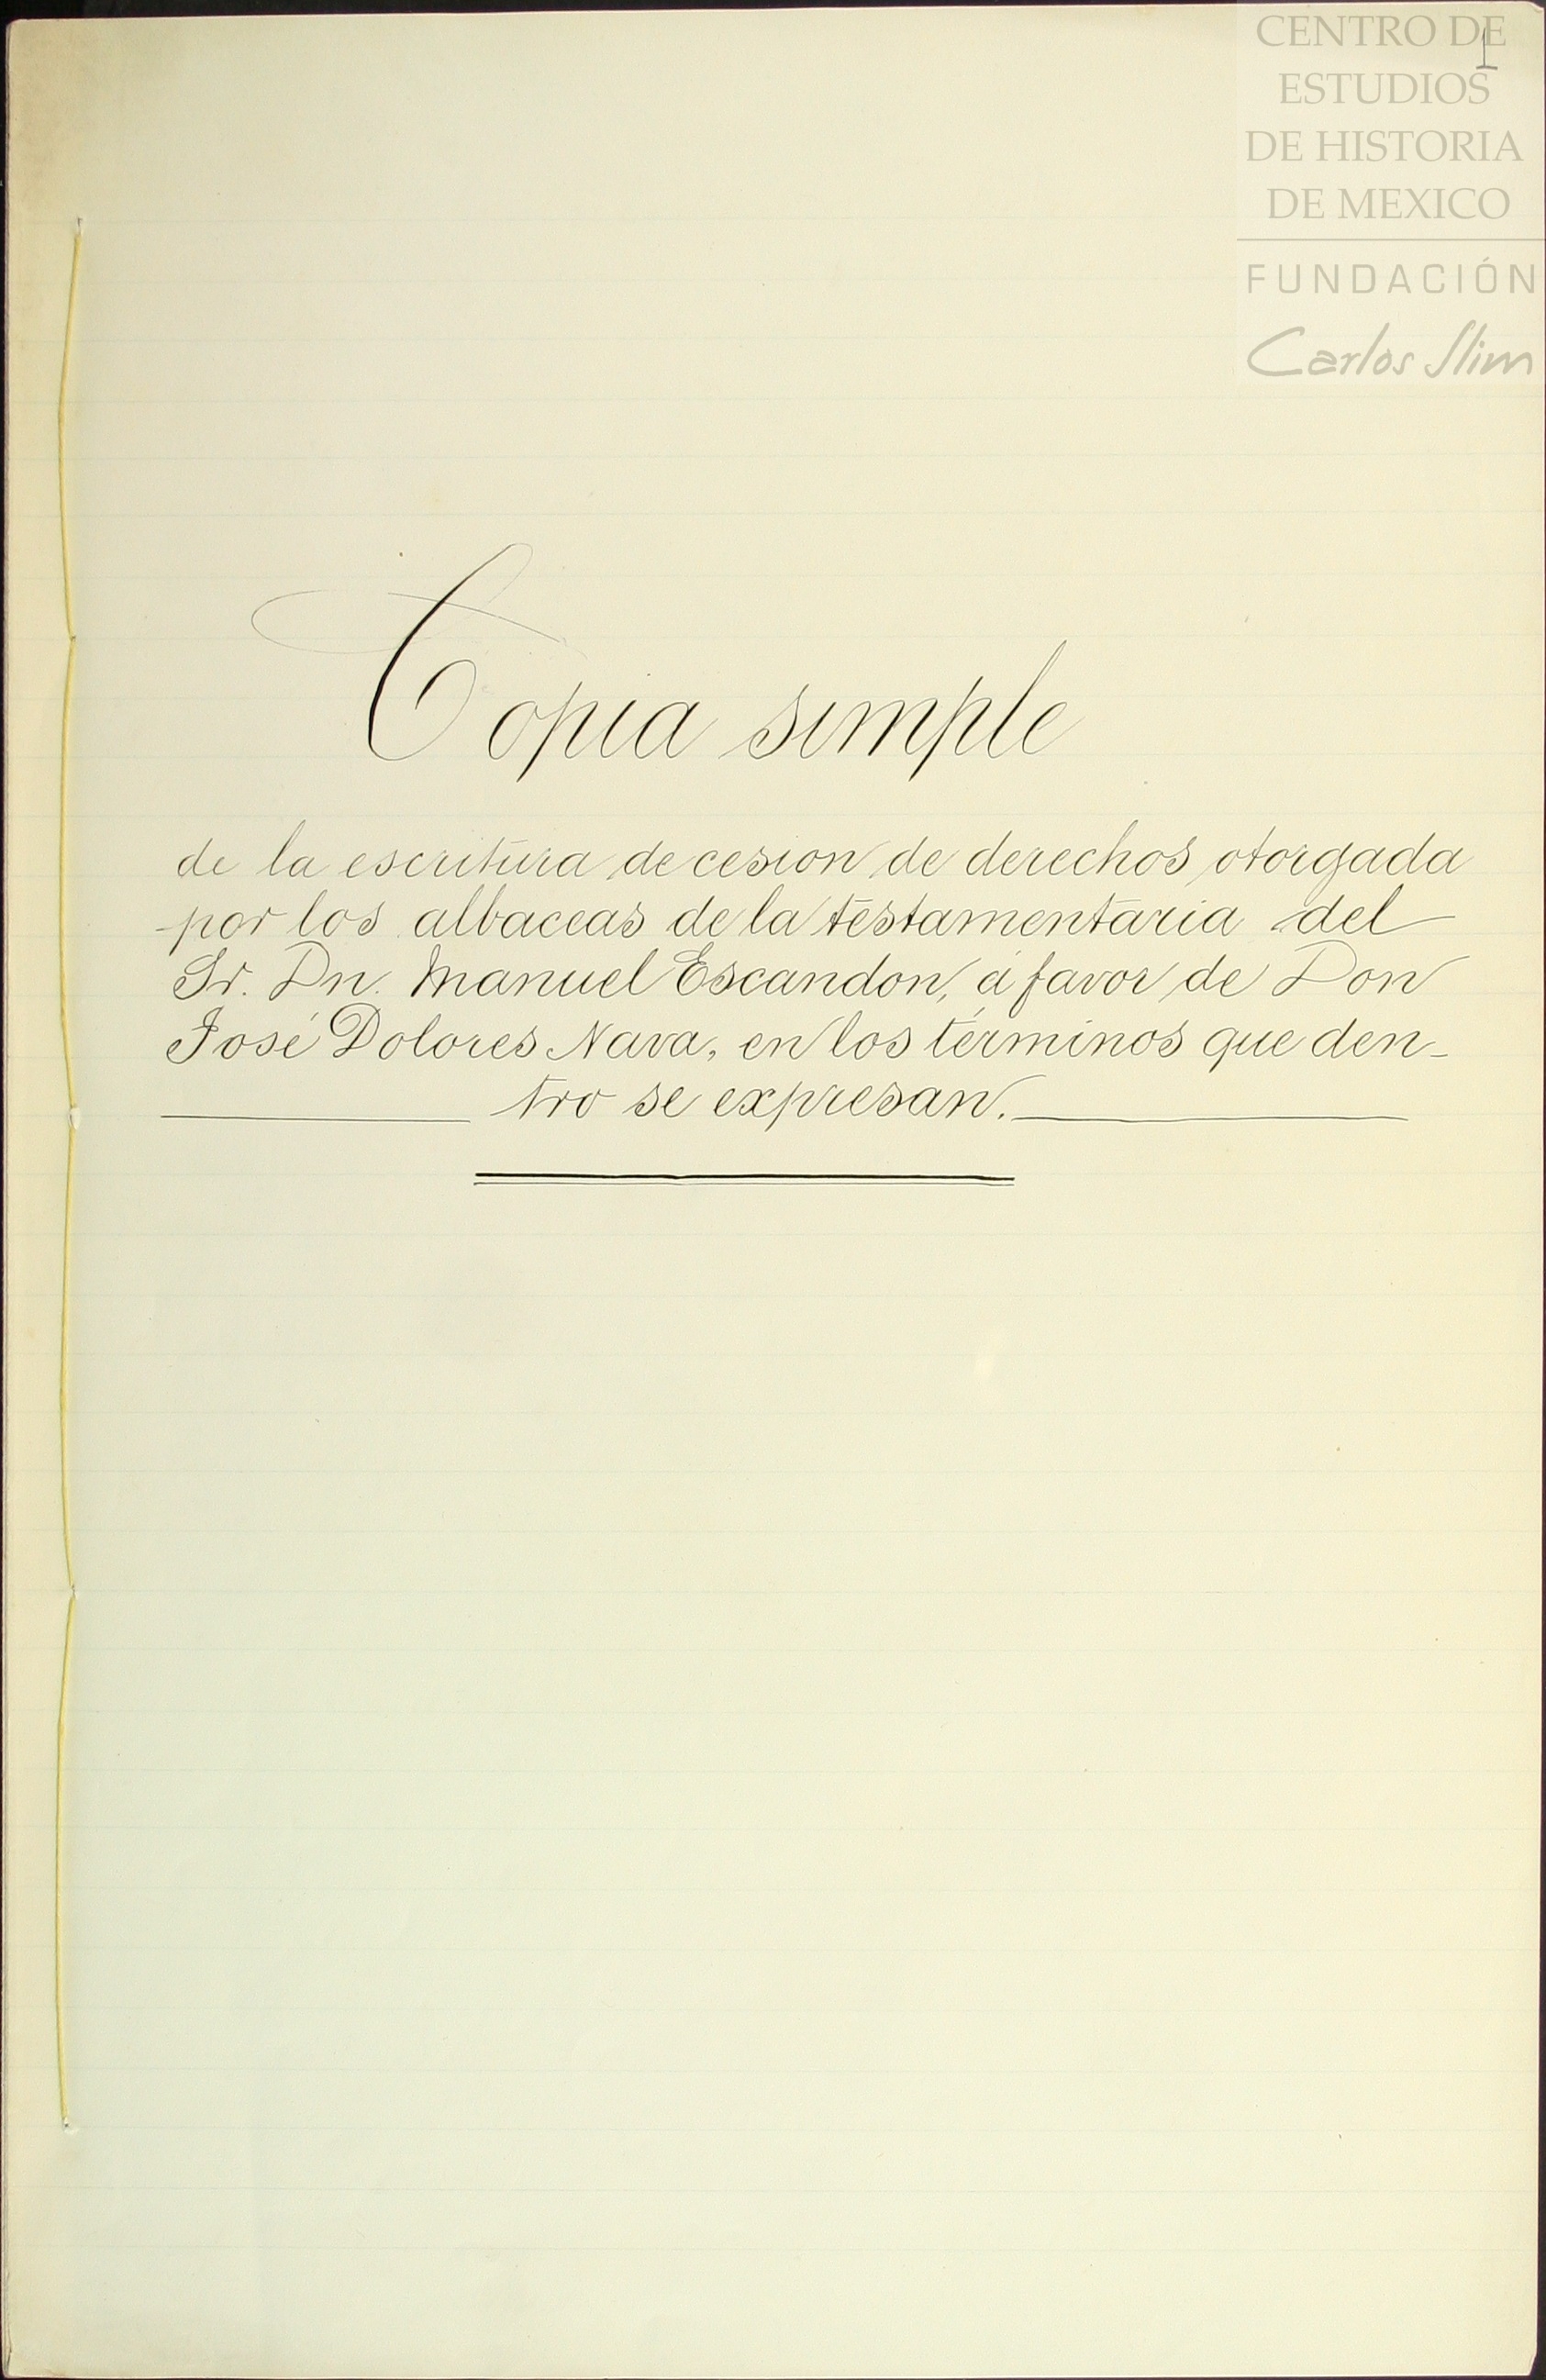 CENTRO DE
ESTUDIOS
DE HISTORIA
DE MEXICO
FUNDACIÓN
Carlos Slim
1
Copia simple
de la escritura de cesion de derechos otorgada
por los albaceas de la testamentaria del
Sr. Dn. Manuel Escandon, á favor de Don
José Dolores Nava, en los términos que den-
tro se expresan.